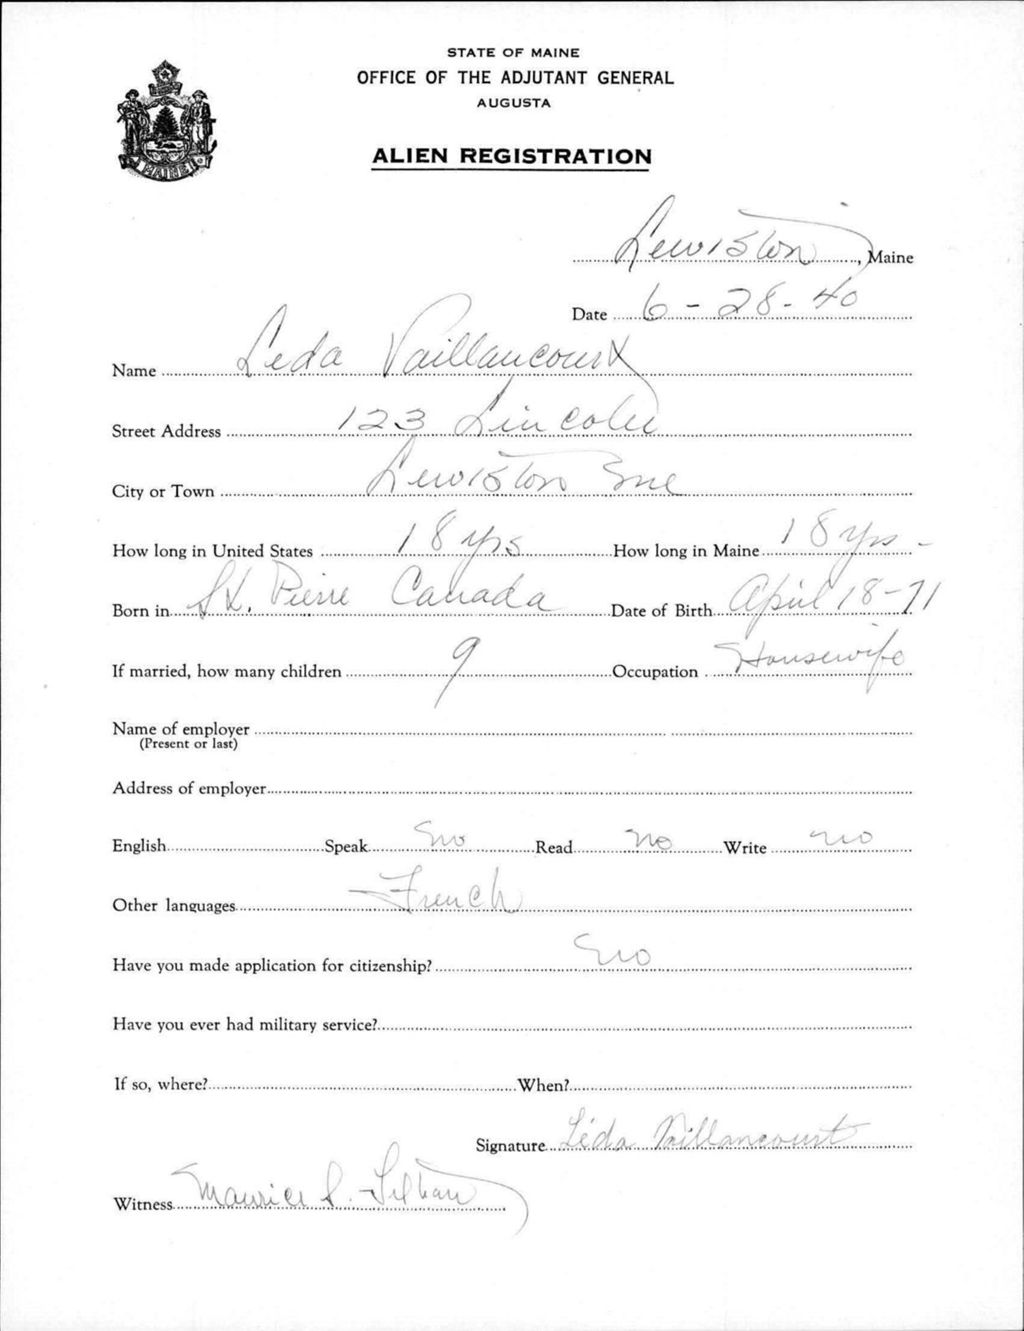 STATE OF MAINE
OFFICE OF THE ADJUTANT GENERAL
AUGUSTA
ALIEN REGISTRATION
MAINE
Lewiston, Maine
Date 6-28-40
Name Leda Vaillancourt
Street Address 123 Lincoln
City or Town Lewiston Me
How long in United States 18 yrs How long in Maine 18 yrs-
Born in St. Pierre Canada Date of Birth April 18-71
If married, how many children 9 Occupation Housewife
Name of employer
(Present or last)
Address of employer
English Speak no Read no Write no
Other languages French
Have you made application for citizenship? no
Have you ever had military service?
If so, where? When?
Signature Léda Vaillancourt
Witness Maurice S.